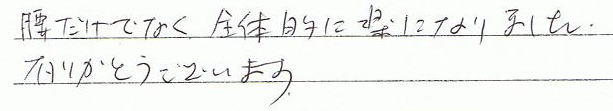 腰だけでなく 全体的に楽になりました.
ありがとうございます